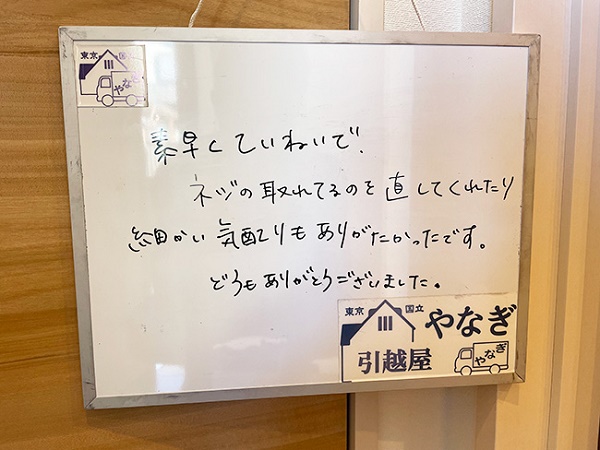 東京 国立
やなぎ
素早くていねいで、
ネジの取れてるのを直してくれたり
細かい気配りもありがたかったです。
どうもありがとうございました。
東京 国立 やなぎ
引越屋 やなぎ